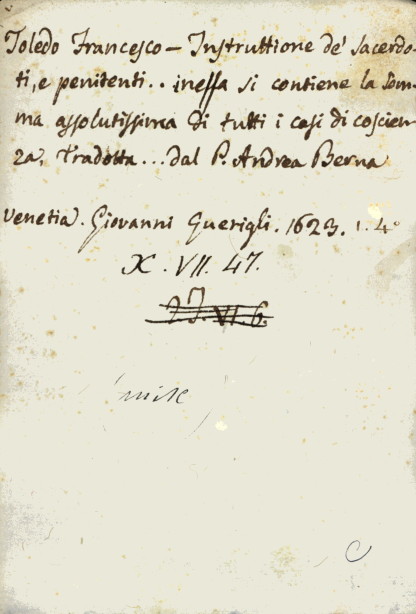 Toledo Francesco – Instruttione de' Sacerdo-
ti, e penitenti.. inessa si contiene la som-
ma assolutissima di tutti i casi di coscien-
za, Tradotta... dal P. Andrea Berna
Venetia. Giovanni Guerigli. 1623. 1. 4°
X. VII. 47.
VI. 6.
C